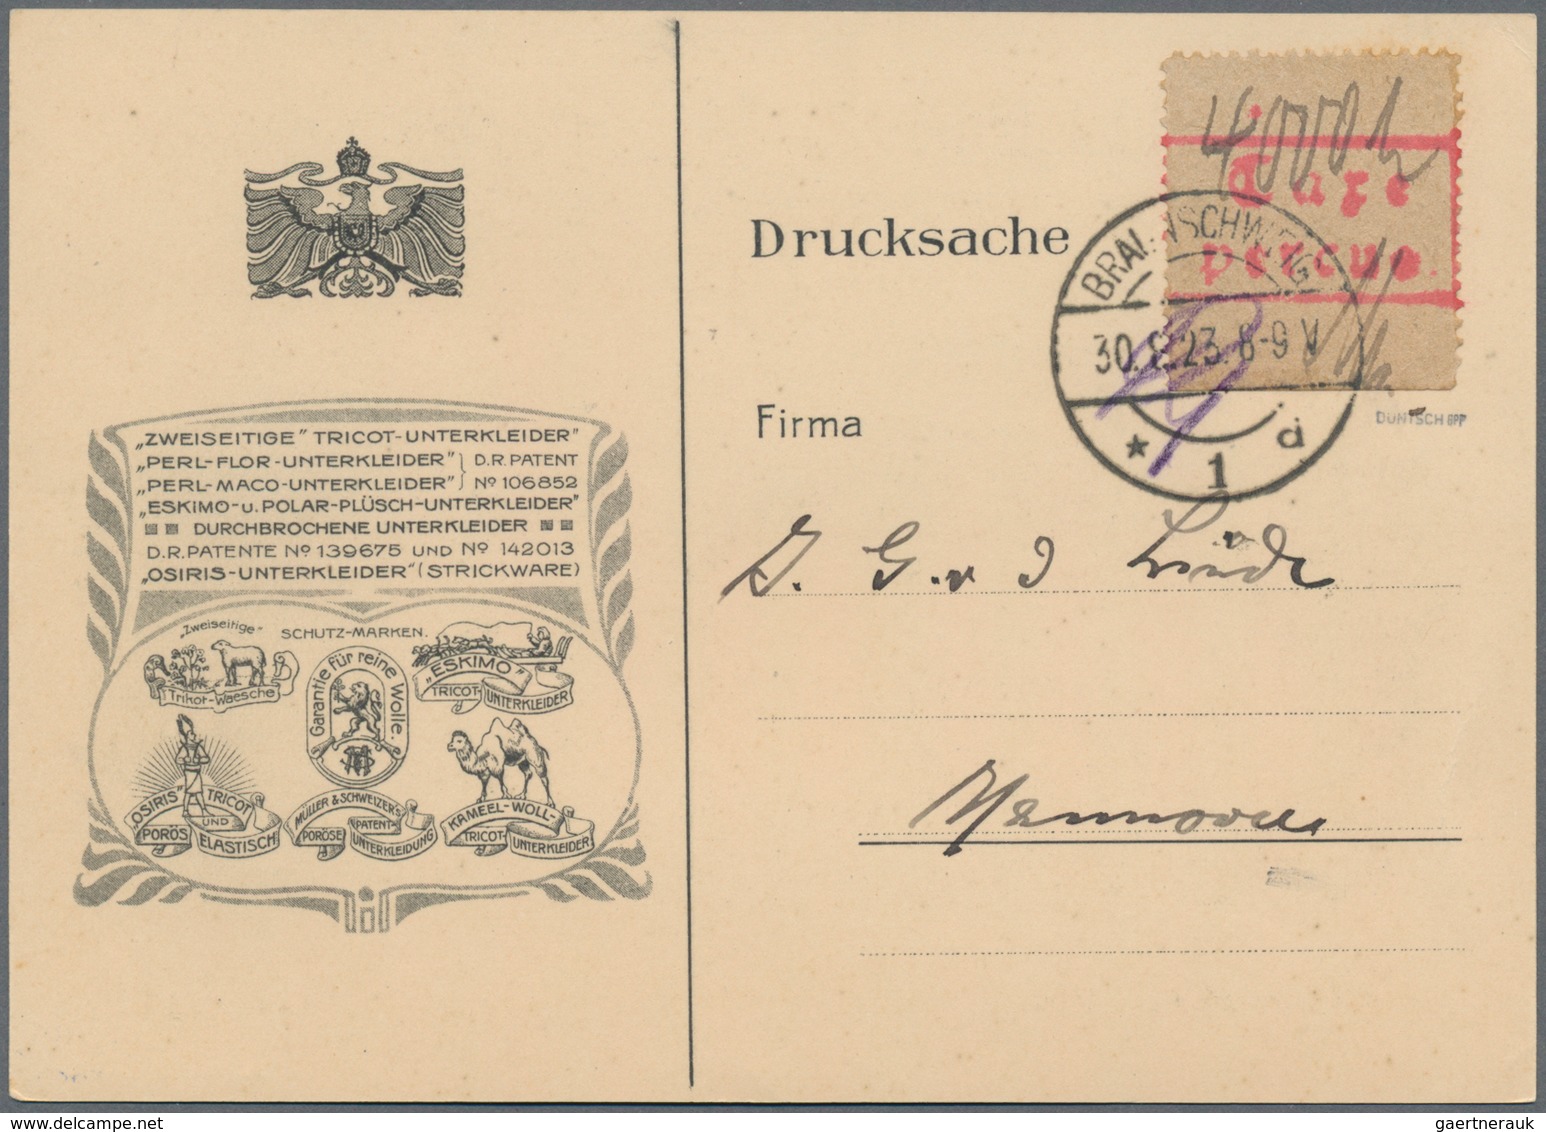 Drucksache
4000
Taxe
perçue.
BRAUNSCHWEIG
30. 23. 8-9 V
* 1 d
DÜNTSCH BPP
Firma
„ZWEISEITIGE" TRICOT-UNTERKLEIDER"
„PERL-FLOR-UNTERKLEIDER" } D.R.PATENT
„PERL-MACO-UNTERKLEIDER" } No 106852
„ESKIMO-u.POLAR-PLÜSCH-UNTERKLEIDER"
DURCHBROCHENE UNTERKLEIDER
D.R.PATENTE No 139675 UND No 142013
„OSIRIS-UNTERKLEIDER" (STRICKWARE)
„Zweiseitige" SCHUTZ-MARKEN.
Trikot-Waesche
Garantie für reine Wolle.
„ESKIMO"
TRICOT UNTERKLEIDER
„OSIRIS" TRICOT
UND
PORÖS ELASTISCH
MÜLLER & SCHWEIZER'S
PATENT-
PORÖSE UNTERKLEIDUNG
KAMEEL-WOLL-
TRICOT-UNTERKLEIDER
J. G. v d Linde
Hannover
delcampe.net
gaertnerauk